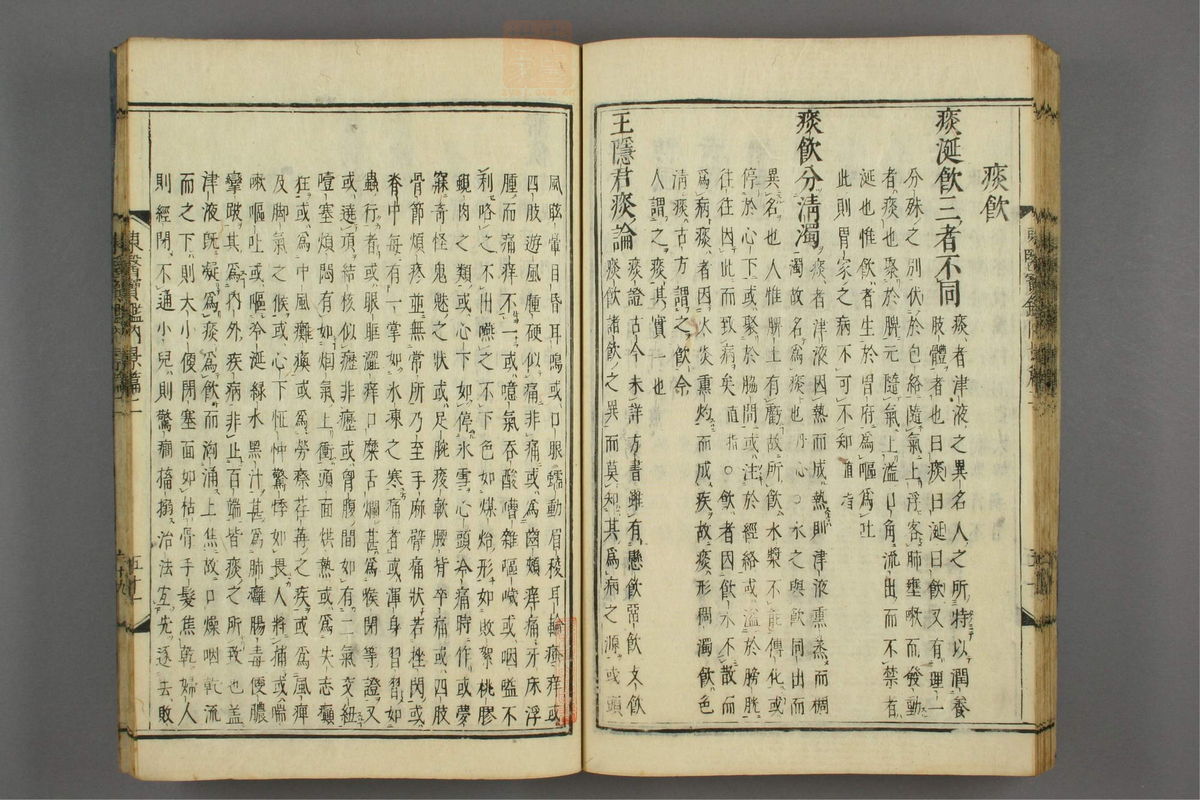 痰飲
痰涎飲三者不同 痰者津液之異名人之所特以潤養
肢體者也曰痰曰涎曰飲又有理一
分殊之別伏於包絡隨氣上浮客肺壅嗽而發動
者痰也聚於脾元隨氣上溢口角流出而不禁者
涎也惟飲者生於胃府爲嘔爲吐
此則胃家之病不可不知直指
痰飲分清濁 痰者津液因熱而成熱則津液熏蒸而稠
濁故名爲痰也丹心○水之與飲同出而
異名也人惟脾土有虧故所飲水漿不能傳化或
停於心下或聚於脇間或注於經絡或溢於膀胱
往往因此而致病矣直指○飲者因飲水不散而
爲病痰者因火炎熏灼而成疾故痰形稠濁飲色
清痰古方謂之飲今
人謂之痰其實一也
王隱君痰論 痰證古今未詳方書雖有懸飲留飲支飲
痰飲諸飲之異而莫知其爲病之源或頭
風眩暈目昏耳鳴或口眼蠕動眉稜耳輪痒痒或
四肢遊風腫硬似痛非痛或爲齒頰痒痛牙床浮
腫而痛痒不一或噫氣吞酸嘈雜嘔噦或咽嗌不
利咯之不出嚥之不下色如煤炲形如敗絮桃膠
蜆肉之類或心下如停氷雪心頭冷痛時作或夢
寐奇怪鬼魅之狀或足腕痠軟腰背卒痛或四肢
骨節煩疼並無常所乃至手麻臂痛狀若挫閃或
脊中每有一掌如氷凍之寒痛者或渾身習習如
蟲行者或眼眶澀痒口糜舌爛甚爲喉閉等證又
或遶項結核似癧非癧或胷腹間如有二氣交紐
噎塞煩悶有如烟氣上衝頭面烘熱或爲失志癲
狂或爲中風癱瘓或爲勞瘵荏苒之疾或爲風痺
及脚氣之候或心下怔忡驚悸如畏人將捕或喘
嗽嘔吐或嘔冷涎綠水黑汁甚爲肺癰腸毒便膿
攣跛其爲內外疾病非止百端皆痰之所致也盖
津液既凝爲痰爲飲而洶涌上焦故口燥咽乾流
而之下則大小便閉塞面如枯骨手髮焦乾婦人
則經閉不通小兒則驚癎搐搦治法互先逐去敗
東醫寶鑑內景篇二